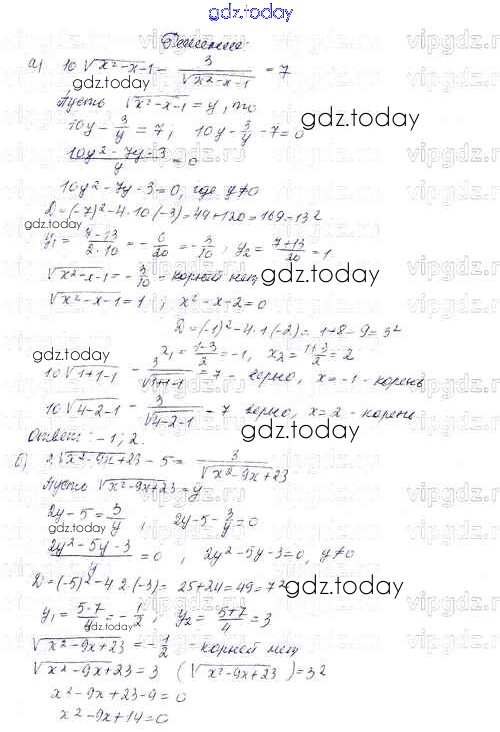 gdz.today
Решение:
а) 10√(x²-x-1) - 3/√(x²-x-1) = 7
gdz.today
Пусть √(x²-x-1) = y, то
10y - 3/y = 7; 10y - 3/y - 7 = 0
gdz.today
(10y²-7y-3)/y = 0
10y²-7y-3=0, где y≠0
D=(-7)²-4·10(-3)=49+120=169=13²
gdz.today
y₁ = (7-13)/(2·10) = -6/20 = -3/10; y₂ = (7+13)/20 = 1
√(x²-x-1) = -3/10 - корней нет
gdz.today
√(x²-x-1) = 1; x²-x-2=0
D=(-1)²-4·1(-2)=1+8=9=3²
gdz.today
x₁ = (1-3)/2 = -1, x₂ = (1+3)/2 = 2
10√(1+1-1) - 3/√(1+1-1) = 7 - верно, x=-1 - корень
gdz.today
10√(4-2-1) - 3/√(4-2-1) = 7 верно, x=2 - корень
Ответ: -1; 2.
gdz.today
б) 2√(x²-9x+23) - 5 = 3/√(x²-9x+23)
Пусть √(x²-9x+23) = y
2y-5 = 3/y, 2y-5-3/y=0
gdz.today
(2y²-5y-3)/y = 0, 2y²-5y-3=0, y≠0
D=(-5)²-4·2(-3)=25+24=49=7²
gdz.today
y₁ = (5-7)/4 = -1/2; y₂ = (5+7)/4 = 3
gdz.today
√(x²-9x+23) = -1/2 - корней нет
√(x²-9x+23) = 3 (√(x²-9x+23))=3²
x²-9x+23-9=0
x²-9x+14=0